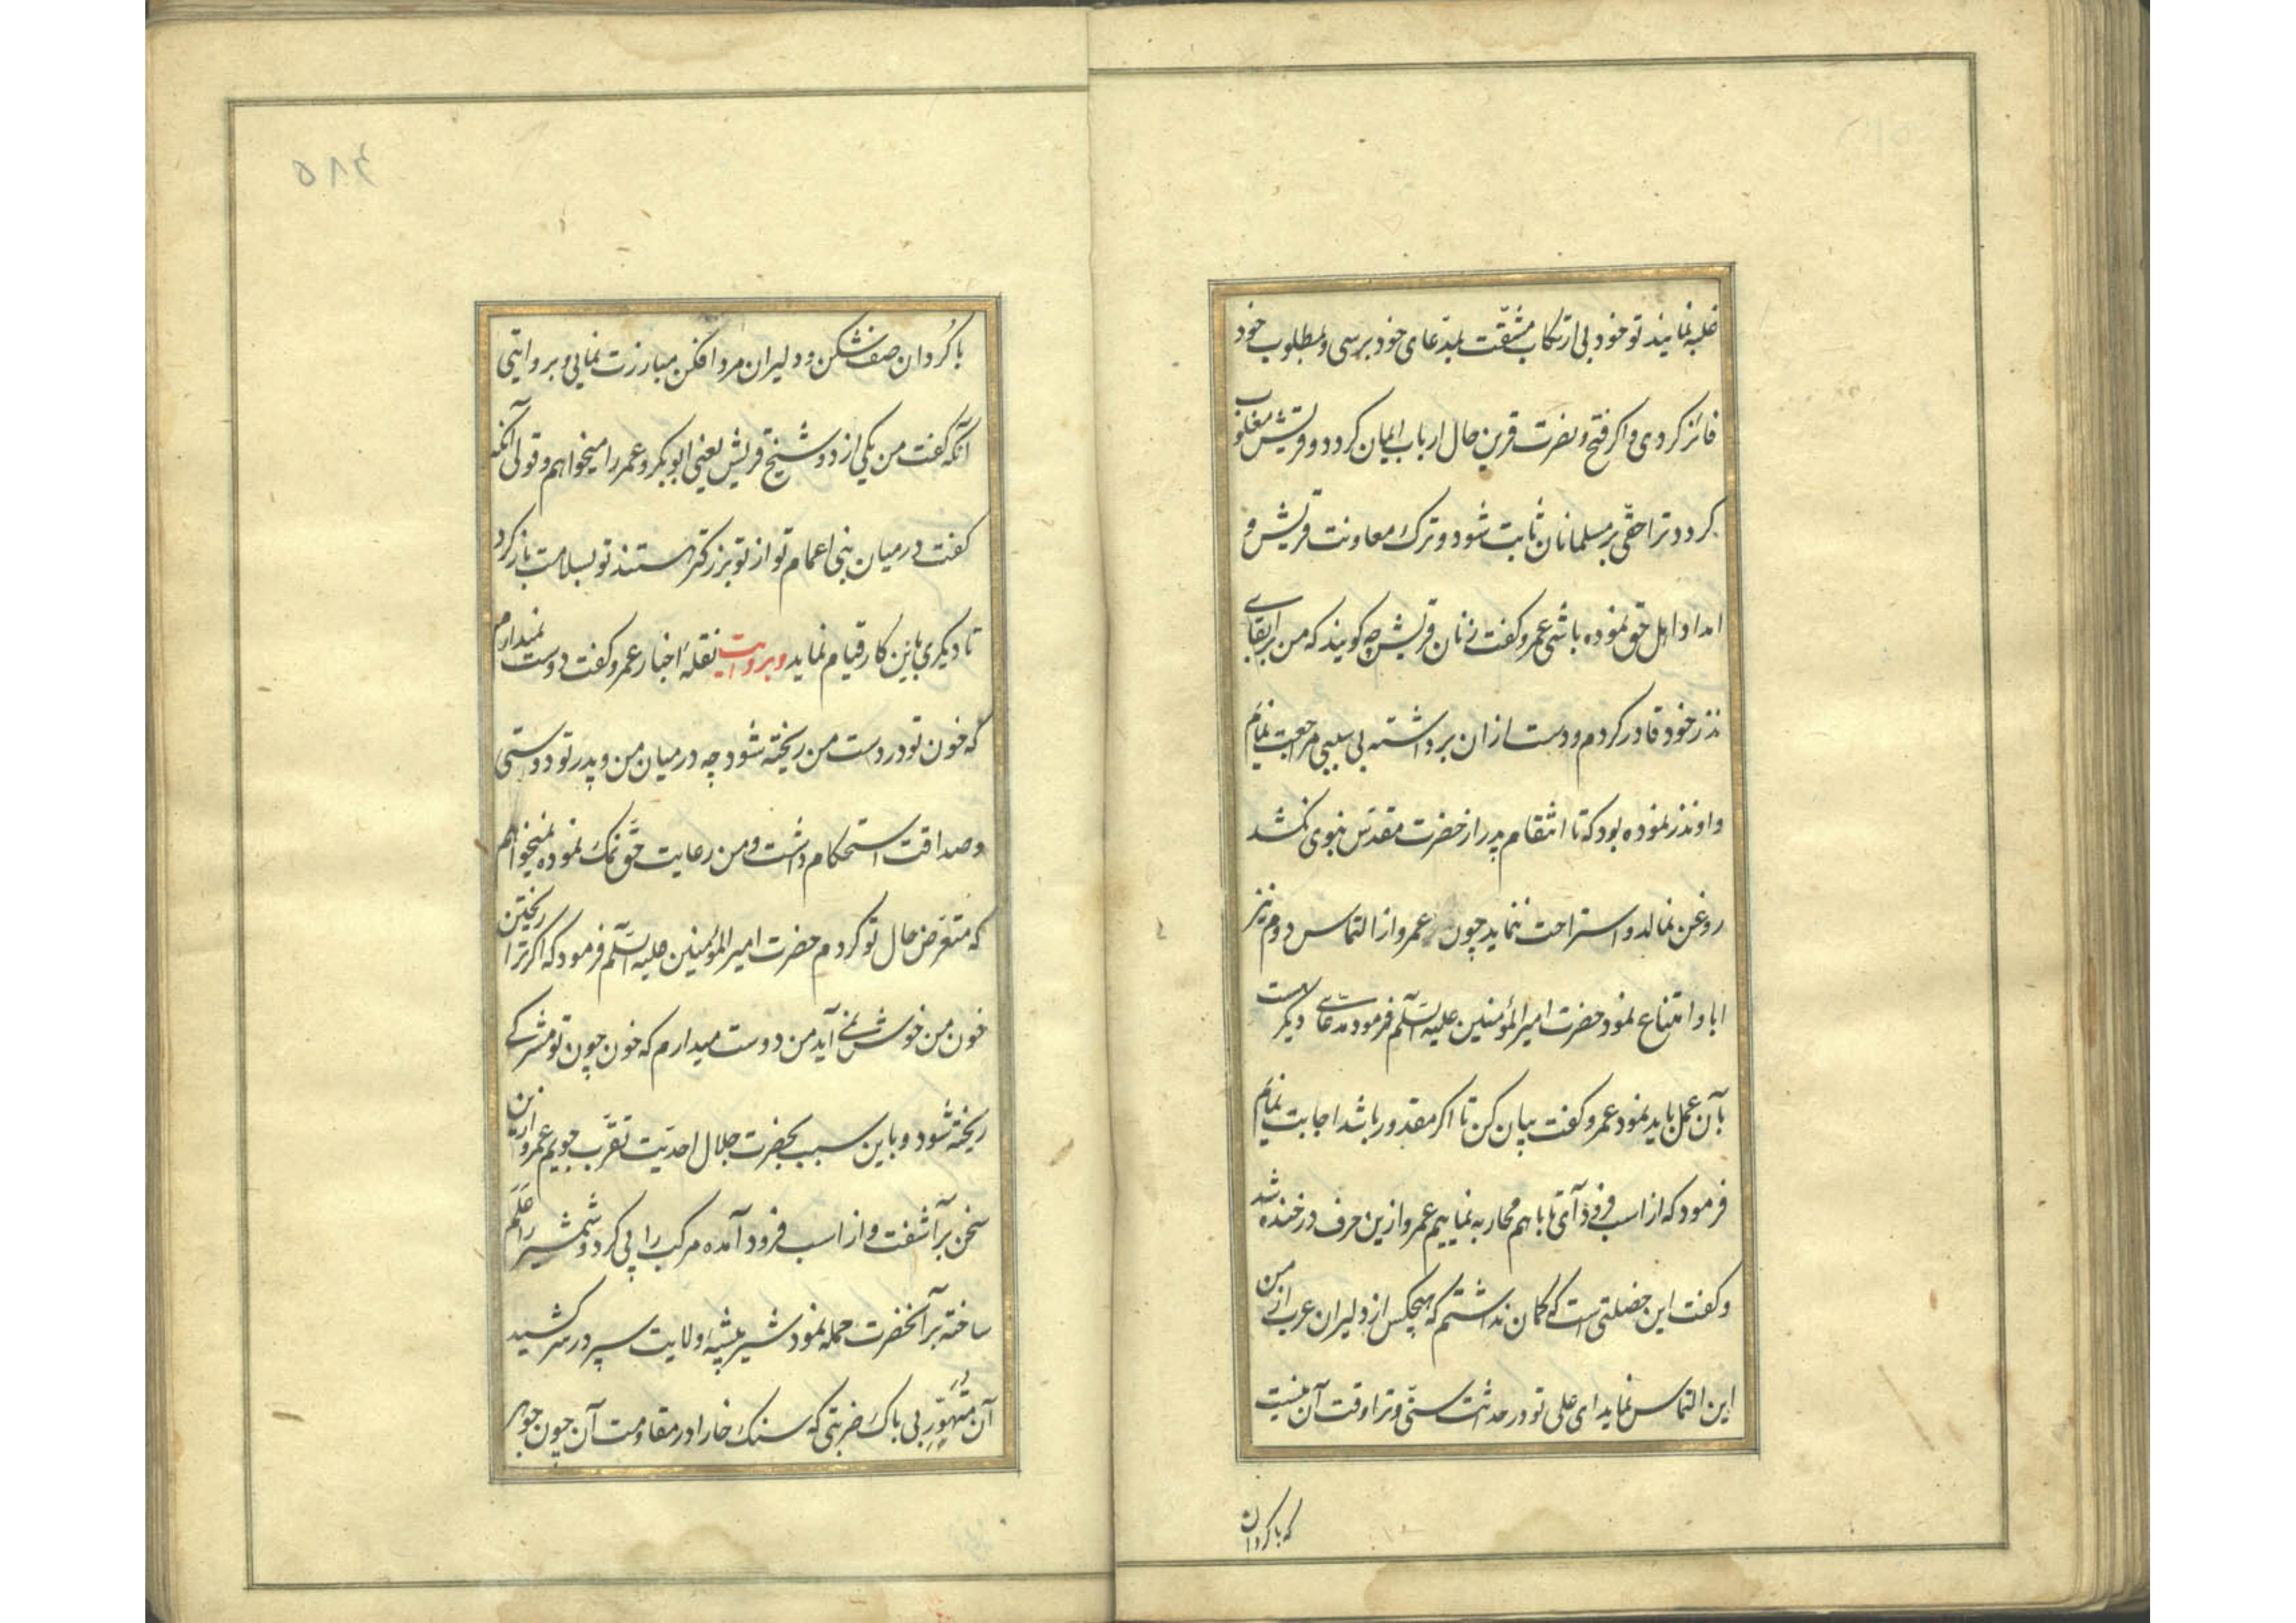 غلبه نمایند تو خود بی ارتکاب مشقّت بمدّعای خود برسی و بمطلوب خود
فائز کردی و اکر فتح و نصرت قرین حال ارباب ایمان کردد و قریش مغلوب
کردد ترا حقّی بر مسلمانان ثابت شود و ترک معاونت قریش و
امداد اهل حق نموده باشی عمرو کفت زنان قریش چه کویند که من بر ایفای
نذر خود قادر کردم و دست از ان برداشته بی سببی مراجعت نمایم
و او نذر نموده بود که تا انتقام پدر از حضرت مقدّس نبوی نکشد
روغن نمالد و استراحت ننماید چون عمرو از التماس دوم نیز
ابا و امتناع نمود حضرت امیر المؤمنین علیه السّلم فرمود مدّعای دیکر هست
بآن عمل باید نمود عمرو کفت بیان کن تا اکر مقدور باشد اجابت نمایم
فرمود که از اسب فرود آی تا با هم محاربه نماییم عمرو ازین حرف در خنده شد
و کفت این خصلتی است که کمان نداشتم که هیچکس از دلیران عرب از من
این التماس نماید ای علی تو در حداثت سنّی و ترا وقت آن نیست
که با کردان
۵۸۴
با کُردان صف شکن و دلیران مرد افکن مبارزت نمایی و بروایتی
آنکه کفت من یکی از دو شیخ قریش یعنی ابو بکر و عمر را میخواهم و قولی آنکه
کفت در میان بنی اعمام تو از تو بزرکتر هستند تو بسلامت باز کرد
تا دیکری باین کار قیام نماید و بروایت نقلهٔ اخبار عمرو کفت دوست نمیدارم
که خون تو در دست من ریخته شود چه در میان من و پدر تو دوستی
و صداقت استحکام داشت و من رعایت حقّ نمک نموده نمیخواهم
که متعرّض حال تو کردم حضرت امیر المؤمنین علیه السّلم فرمود که اکر ترا ریختن
خون من خوش نمی آید من دوست میدارم که خون چون تو مشرکی
ریخته شود و باین سبب بحضرت جلال احدیّت تقرّب جویم عمرو ازین
سخن برآشفت و از اسب فرود آمده مرکب را پی کرد و شمشیر را عَلَم
ساخته بر آنحضرت حمله نمود شیر بیشهٔ ولایت سپر در سر کشید
آن متهوّرِ بی باک ضربتی که سنک خارا در مقاومت آن چون جوهر